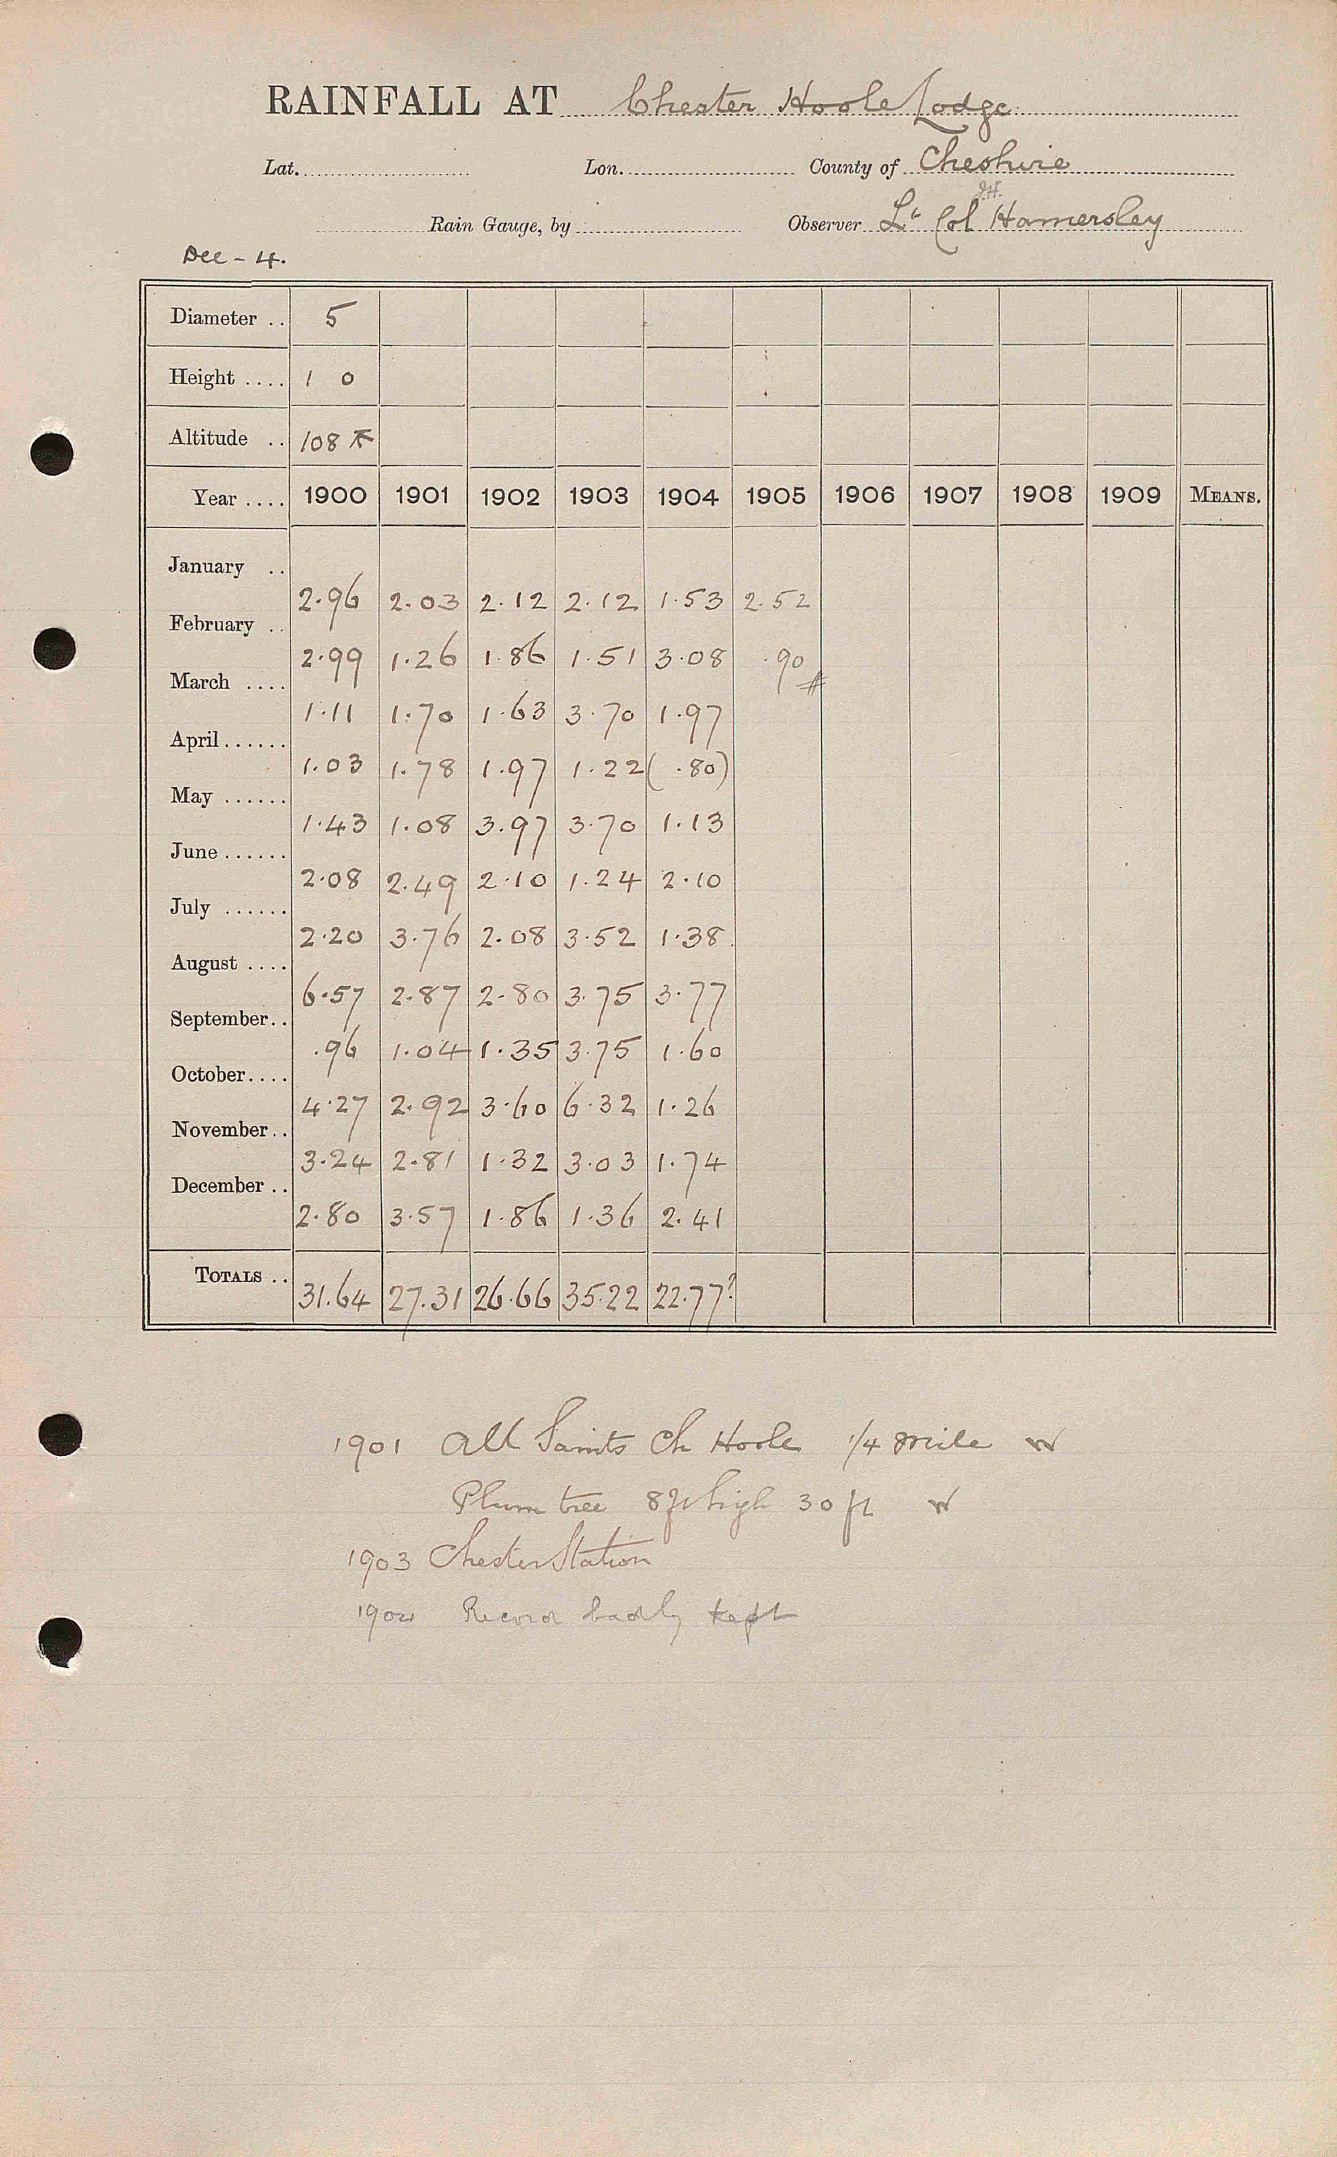 RAINFALL AT Chester Hoole Lodge
Lat. Lon. County of Cheshire
J.H.
Rain Gauge, by Observer Lt Col Hamersley
Dec - 4.
Diameter .. 5
Height .... 1 0
Altitude .. 108
Year .... 1900 1901 1902 1903 1904 1905 1906 1907 1908 1909 MEANS.
January .. 2.96 2.03 2.12 2.12 1.53 2.52
February .. 2.99 1.26 1.86 1.51 3.08 .90
March .... 1.11 1.70 1.63 3.70 1.97
April ...... 1.03 1.78 1.97 1.22 (.80)
May ...... 1.43 1.08 3.97 3.70 1.13
June ...... 2.08 2.49 2.10 1.24 2.10
July ...... 2.20 3.76 2.08 3.52 1.38
August .... 6.57 2.87 2.80 3.75 3.77
September.. .96 1.04 1.35 3.75 1.60
October.... 4.27 2.92 3.60 6.32 1.26
November.. 3.24 2.81 1.32 3.03 1.74
December .. 2.80 3.57 1.86 1.36 2.41
TOTALS .. 31.64 27.31 26.66 35.22 22.77?
1901 All Saints Ch Hoole 1/4 mile W
Plum tree 8ft high 30 ft W
1903 Chester Station
1904 Record badly kept